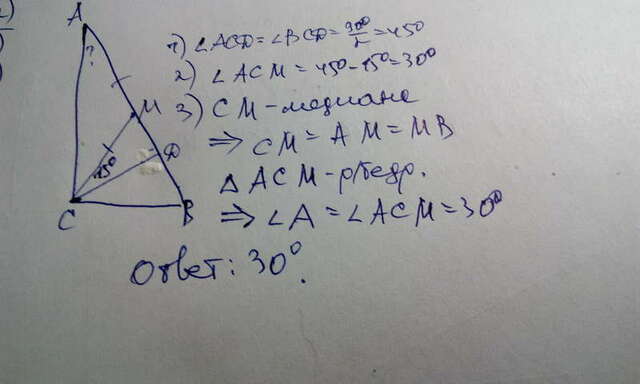 A
?
M
D
15°
C
B
1) ∠ACD = ∠BCD = 90°/2 = 45°
2) ∠ACM = 45° - 15° = 30°
3) CM - медиана
⇒ CM = AM = MB
△ACM - р/бедр.
⇒ ∠A = ∠ACM = 30°
Ответ: 30°.